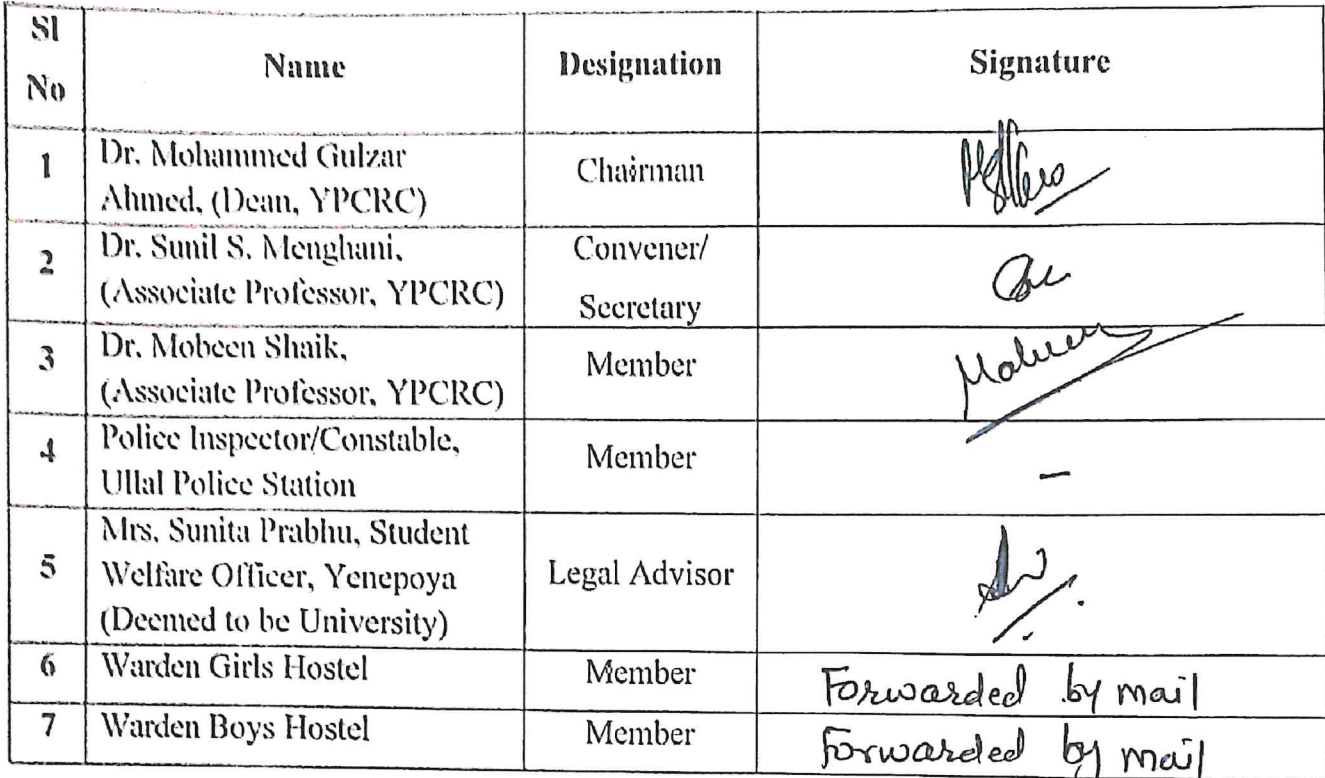 Sl
No
Name
Designation
Signature
1
Dr. Mohammed Gulzar
Ahmed, (Dean, YPCRC)
Chairman
2
Dr. Sunil S. Menghani,
(Associate Professor, YPCRC)
Convener/
Secretary
3
Dr. Mobeen Shaik,
(Associate Professor, YPCRC)
Member
Mobeen
4
Police Inspector/Constable,
Ullal Police Station
Member
-
5
Mrs. Sunita Prabhu, Student
Welfare Officer, Yenepoya
(Deemed to be University)
Legal Advisor
6
Warden Girls Hostel
Member
Forwarded by mail
7
Warden Boys Hostel
Member
Forwarded by mail